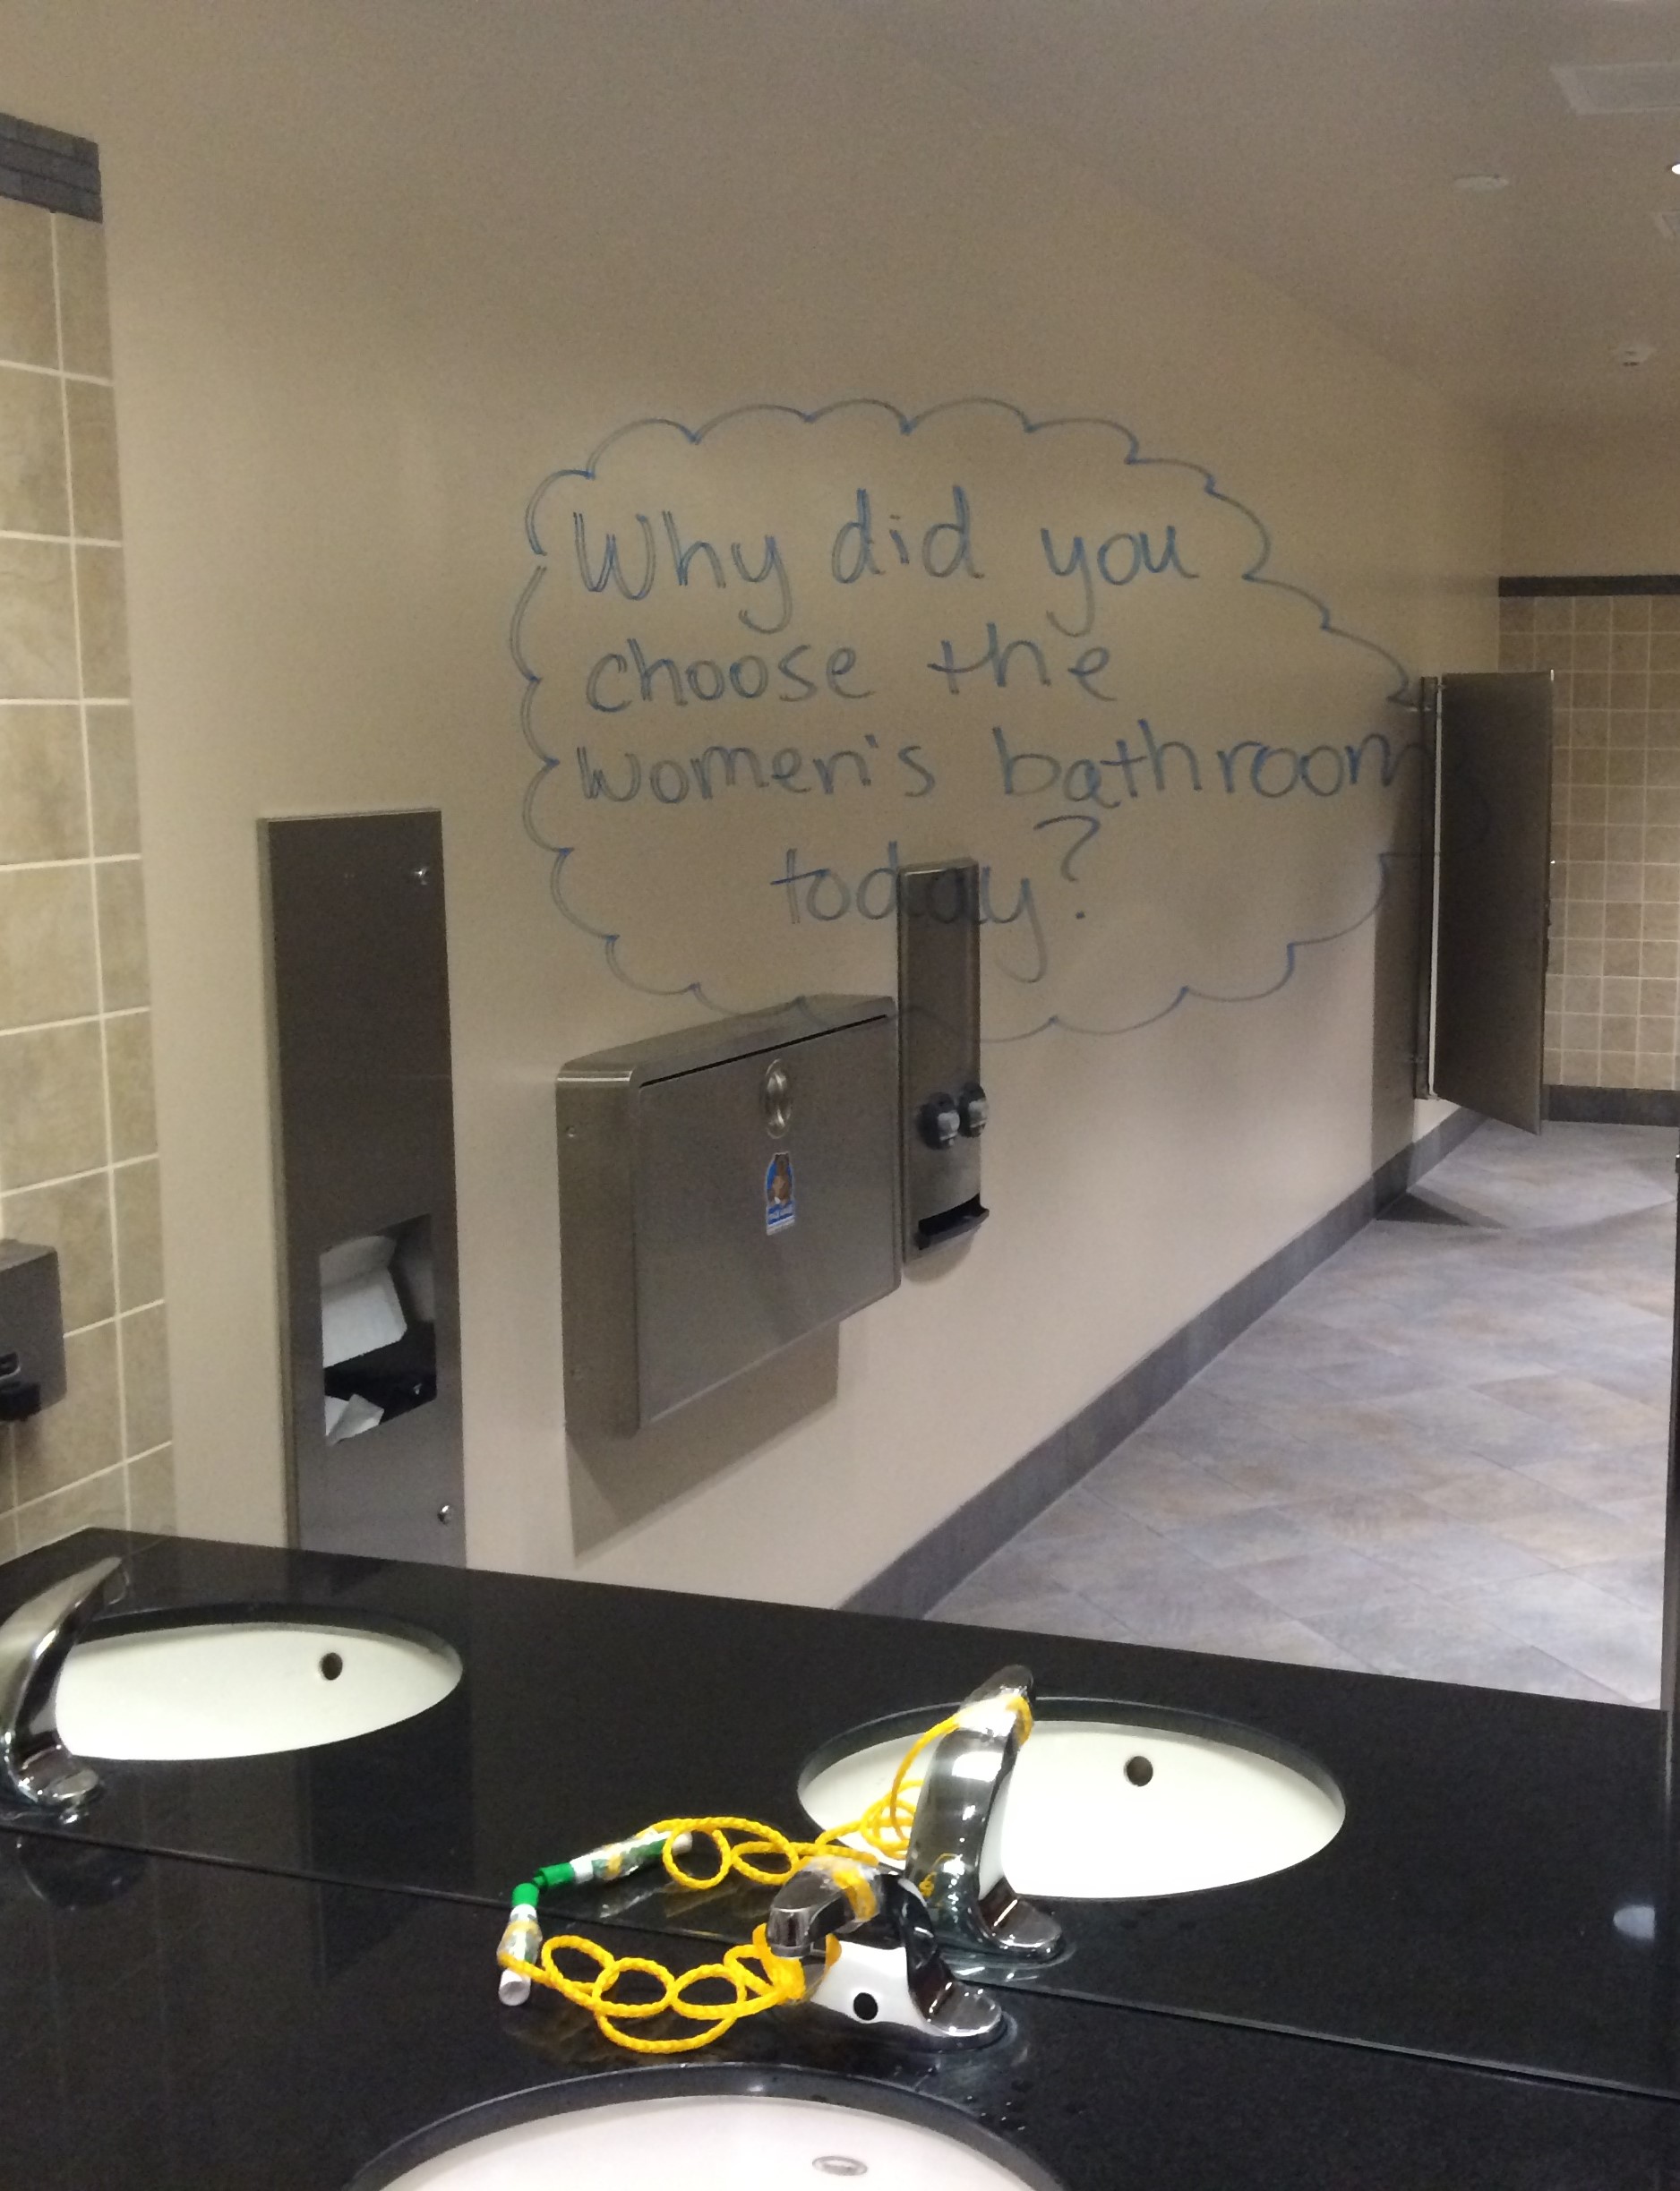 Why did you
choose the
women's bathroom
today?